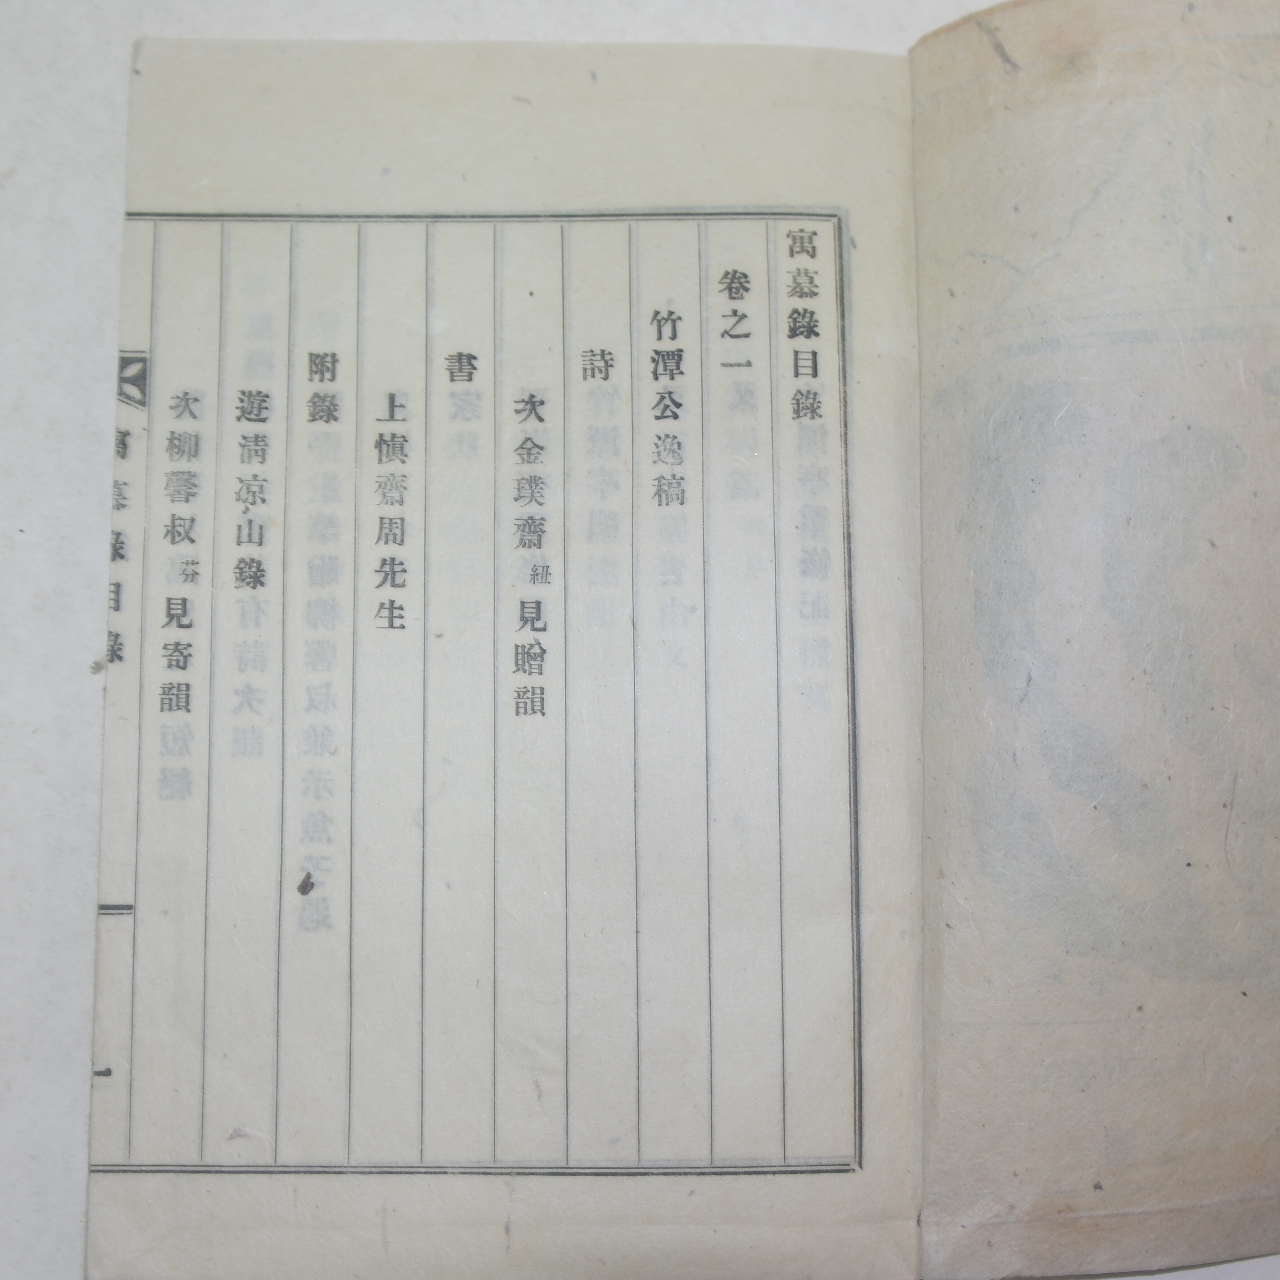 寓慕錄目錄
卷之一
竹潭公逸稿
詩
次金璞齋紐見贈韻
書
上愼齋周先生
附錄
遊淸凉山錄
次柳馨叔芬見寄韻
寓慕錄目錄
一